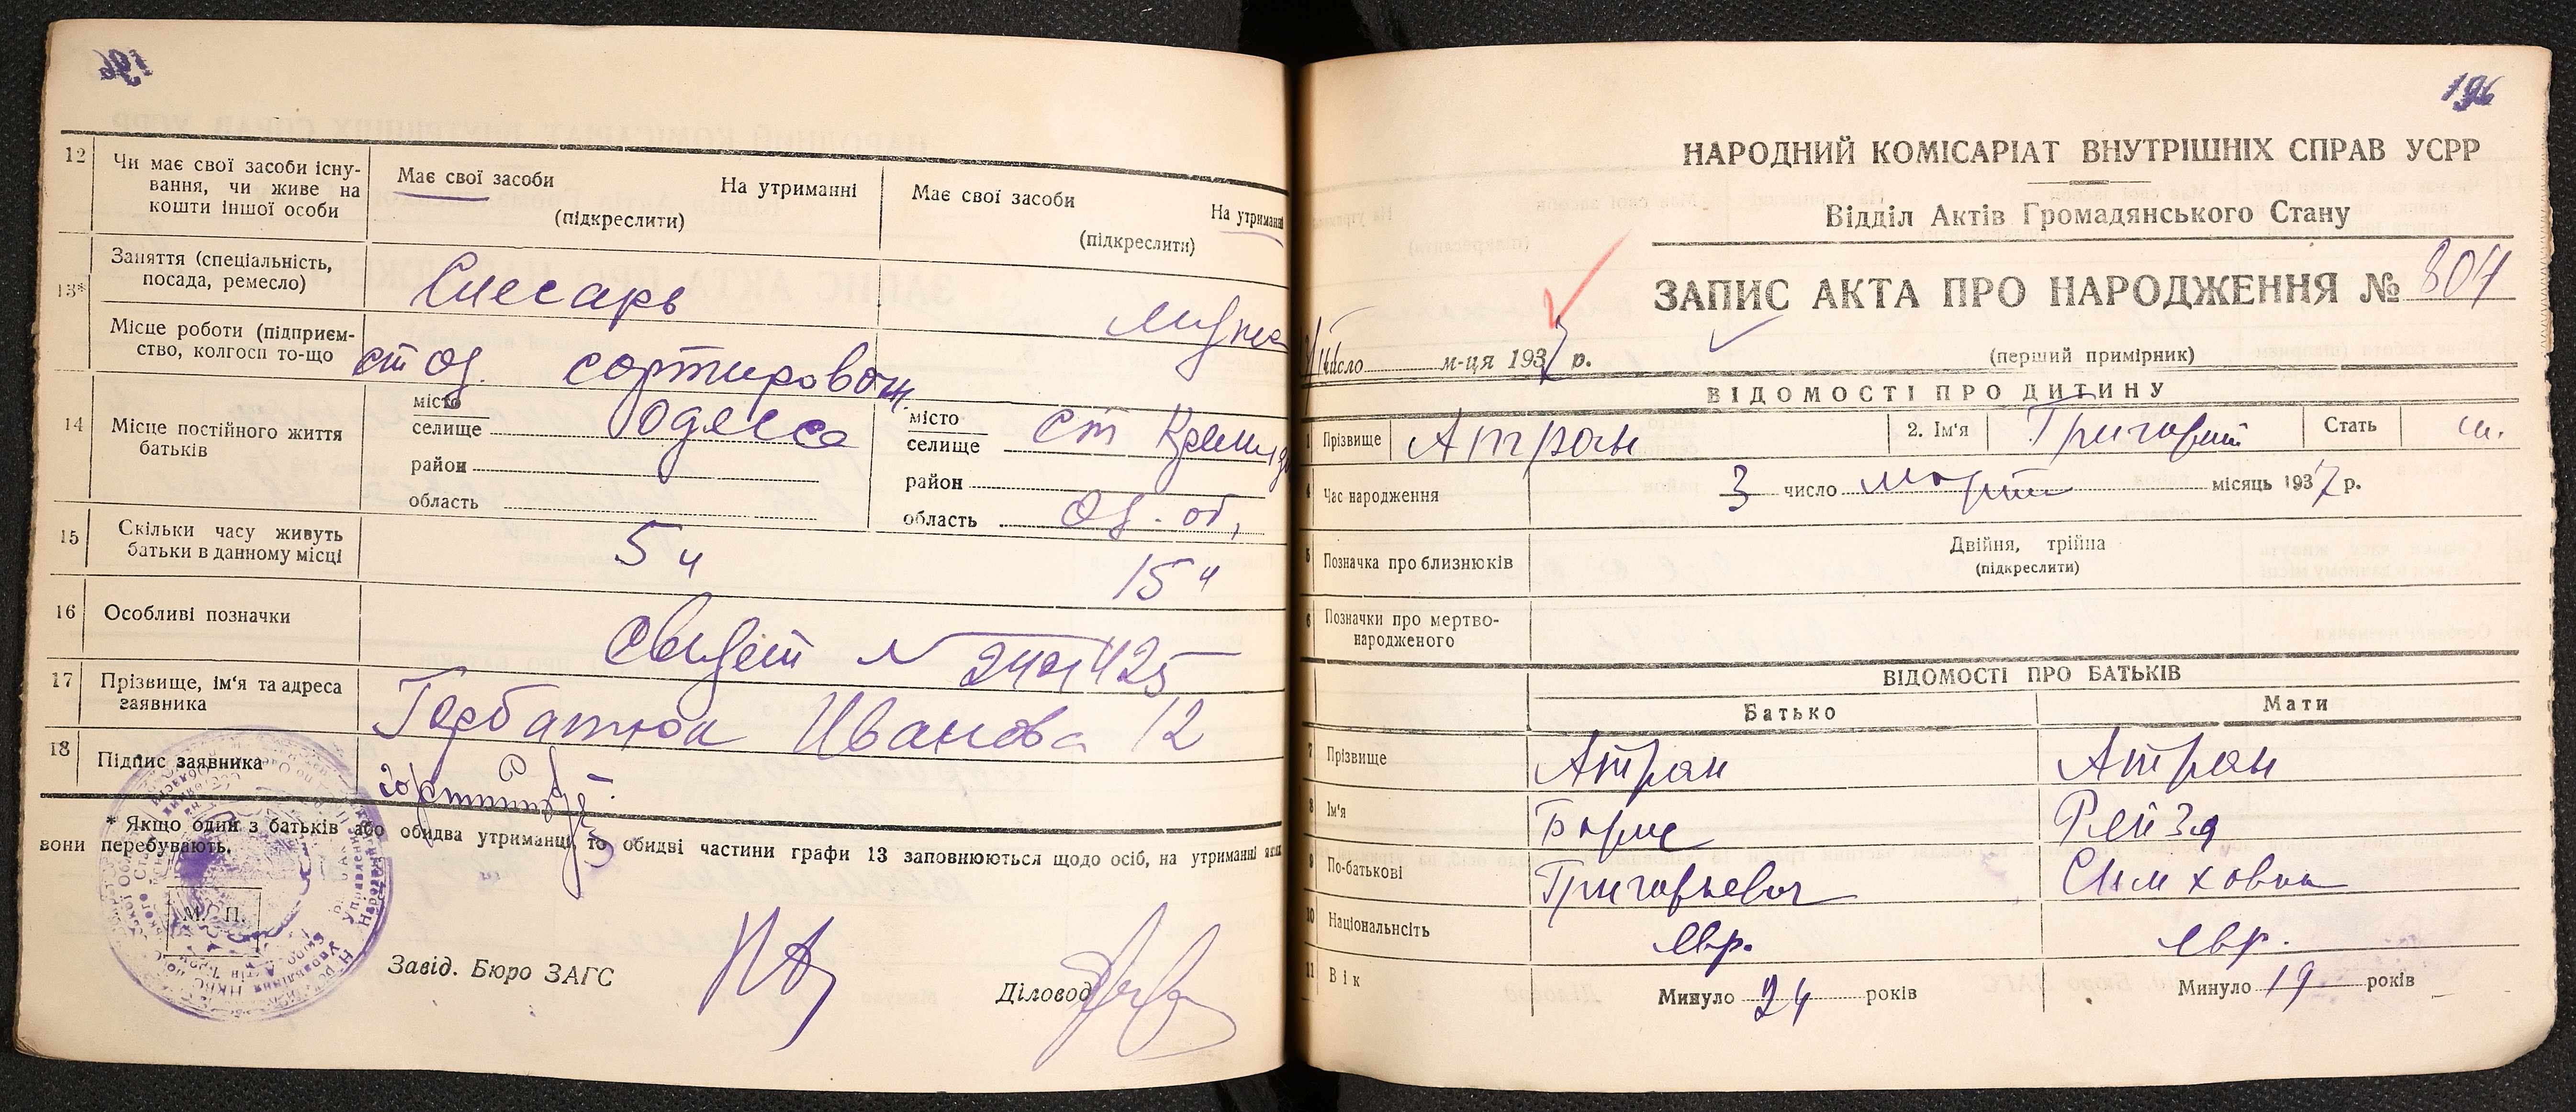 12
Чи має свої засоби існу-
вання, чи живе на
кошти іншої особи
Має свої засоби На утриманні
(підкреслити)
Має свої засоби На утриманні
(підкреслити)
13*
Заняття (спеціальність,
посада, ремесло)
Слесарь
мужа
Місце роботи (підприєм-
ство, колгосп то-що
ст Од. сортировоч.
14
Місце постійного життя
батьків
місто
селище Одесса
район
область
місто
селище ст
район
область Од. об.
15
Скільки часу живуть
батьки в данному місці
5 ч
15 ч
16
Особливі позначки
Свидет №
17
Прізвище, ім'я та адреса
заявника
Горбатюк Иванова 12
18
Підпис заявника
* Якщо один з батьків або обидва утриманці, то обидві частини графи 13 заповнюються щодо осіб, на утриманні яких
вони перебувають.
М. П.
Завід. Бюро ЗАГС
Діловод
196
НАРОДНИЙ КОМІСАРІАТ ВНУТРІШНІХ СПРАВ УСРР
Відділ Актів Громадянського Стану
ЗАПИС АКТА ПРО НАРОДЖЕННЯ № 804
число м-ця 1937 р.
(перший примірник)
ВІДОМОСТІ ПРО ДИТИНУ
1 Прізвище Атран 2. Ім'я Григорий Стать м.
4 Час народження 3 число март місяць 1937 р.
5 Позначка про близнюків Двійня, трійна
(підкреслити)
6 Позначки про мертво-
народженого
ВІДОМОСТІ ПРО БАТЬКІВ
Батько Мати
7 Прізвище Атран Атран
8 Ім'я Борис Рейзя
9 По-батькові Григорьевич Симховна
10 Національнсіть евр. евр.
11 Вік Минуло 24 років Минуло 19 років